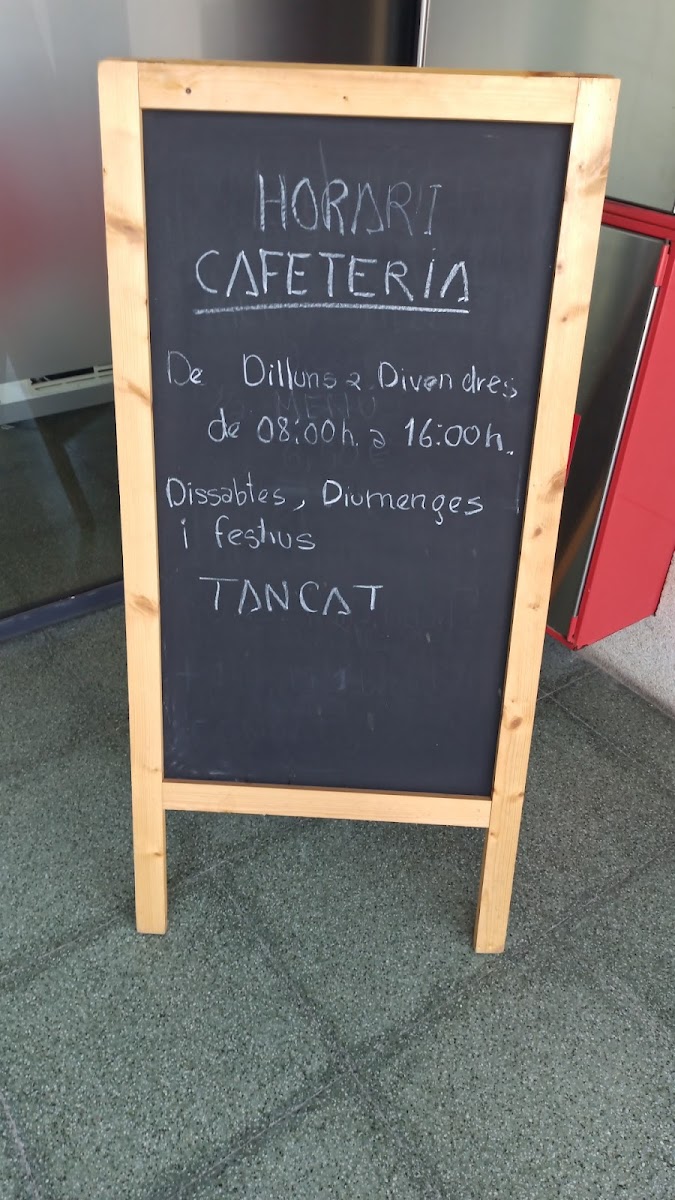 HORARI
CAFETERIA
De Dilluns a Divendres
de 08:00h. a 16:00h.
Dissabtes, Diumenges
i festius
TANCAT